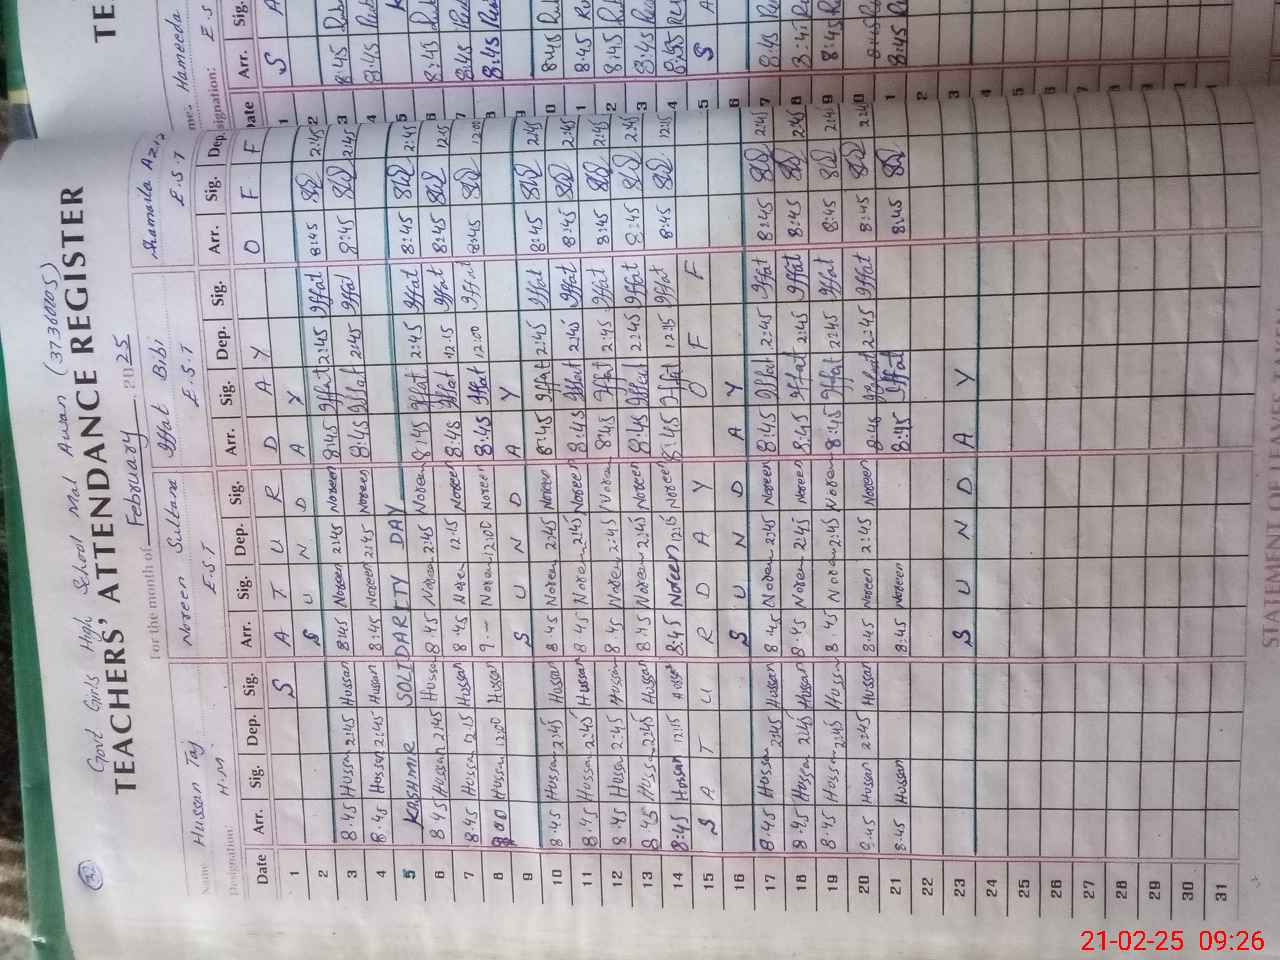 32
Govt Girls High School Mal Awan (37360005)
TEACHERS' ATTENDANCE REGISTER
For the month of February 2025
Name Hussan Taj Noreen Sultana Iffat Bibi Shamaila Aziz
Designation: H.M E.S.T E.S.T E.S.T
Date Arr. Sig. Dep. Sig. Arr. Sig. Dep. Sig. Arr. Sig. Dep. Sig. Arr. Sig. Dep.
1 S A T U R D A Y O F F
2 S U N D A Y
3 8:45 Hussan 2:45 Hussan 8:45 Noreen 2:45 Noreen 8:45 Iffat 2:45 Iffat 8:45 2:45
4 8:45 Hussan 2:45 Hussan 8:45 Noreen 2:45 Noreen 8:45 Iffat 2:45 Iffat 8:45 2:45
5 KASHMIR SOLIDARITY DAY
6 8:45 Hussan 2:45 Hussan 8:45 Noreen 2:45 Noreen 8:45 Iffat 2:45 Iffat 8:45 2:45
7 8:45 Hussan 12:15 Hussan 8:45 Noreen 12:15 Noreen 8:45 Iffat 12:15 Iffat 8:45 12:15
8 Hussan 12:00 Hussan 9:- Noreen 12:00 Noreen 8:45 Iffat 12:00 Iffat 8:45 12:00
9 S U N D A Y
10 8:45 Hussan 2:45 Hussan 8:45 Noreen 2:45 Noreen 8:45 Iffat 2:45 Iffat 8:45 2:45
11 8:45 Hussan 2:45 Hussan 8:45 Noreen 2:45 Noreen 8:45 Iffat 2:45 Iffat 8:45 2:45
12 8:45 Hussan 2:45 Hussan 8:45 Noreen 2:45 Noreen 8:45 Iffat 2:45 Iffat 8:45 2:45
13 8:45 Hussan 2:45 Hussan 8:45 Noreen 2:45 Noreen 8:45 Iffat 2:45 Iffat 8:45 2:45
14 8:45 Hussan 12:15 Hussan 8:45 Noreen 12:15 Noreen 8:45 Iffat 12:15 Iffat 8:45 12:15
15 S A T U R D A Y O F F
16 S U N D A Y
17 8:45 Hussan 2:45 Hussan 8:45 Noreen 2:45 Noreen 8:45 Iffat 2:45 Iffat 8:45 2:45
18 8:45 Hussan 2:45 Hussan 8:45 Noreen 2:45 Noreen 8:45 Iffat 2:45 Iffat 8:45 2:45
19 8:45 Hussan 2:45 Hussan 8:45 Noreen 2:45 Noreen 8:45 Iffat 2:45 Iffat 8:45 2:45
20 8:45 Hussan 2:45 Hussan 8:45 Noreen 2:45 Noreen 8:45 Iffat 2:45 Iffat 8:45 2:45
21 8:45 Hussan 8:45 Noreen 8:45 Iffat 8:45
22
23 S U N D A Y
24
25
26
27
28
29
30
31
STATEMENT OF LEAVE
TE
Hameeda
signation: E.S
Date Arr. Sig.
1 S A
2
3 8:45
4 8:45
5
6 8:45
7 8:45
8 8:45
9
10 8:45
11 8:45
12 8:45
13 8:45
14 8:45
15 S A
16
17 8:45
18 8:45
19 8:45
20 8:45
21 8:45
21-02-25 09:26